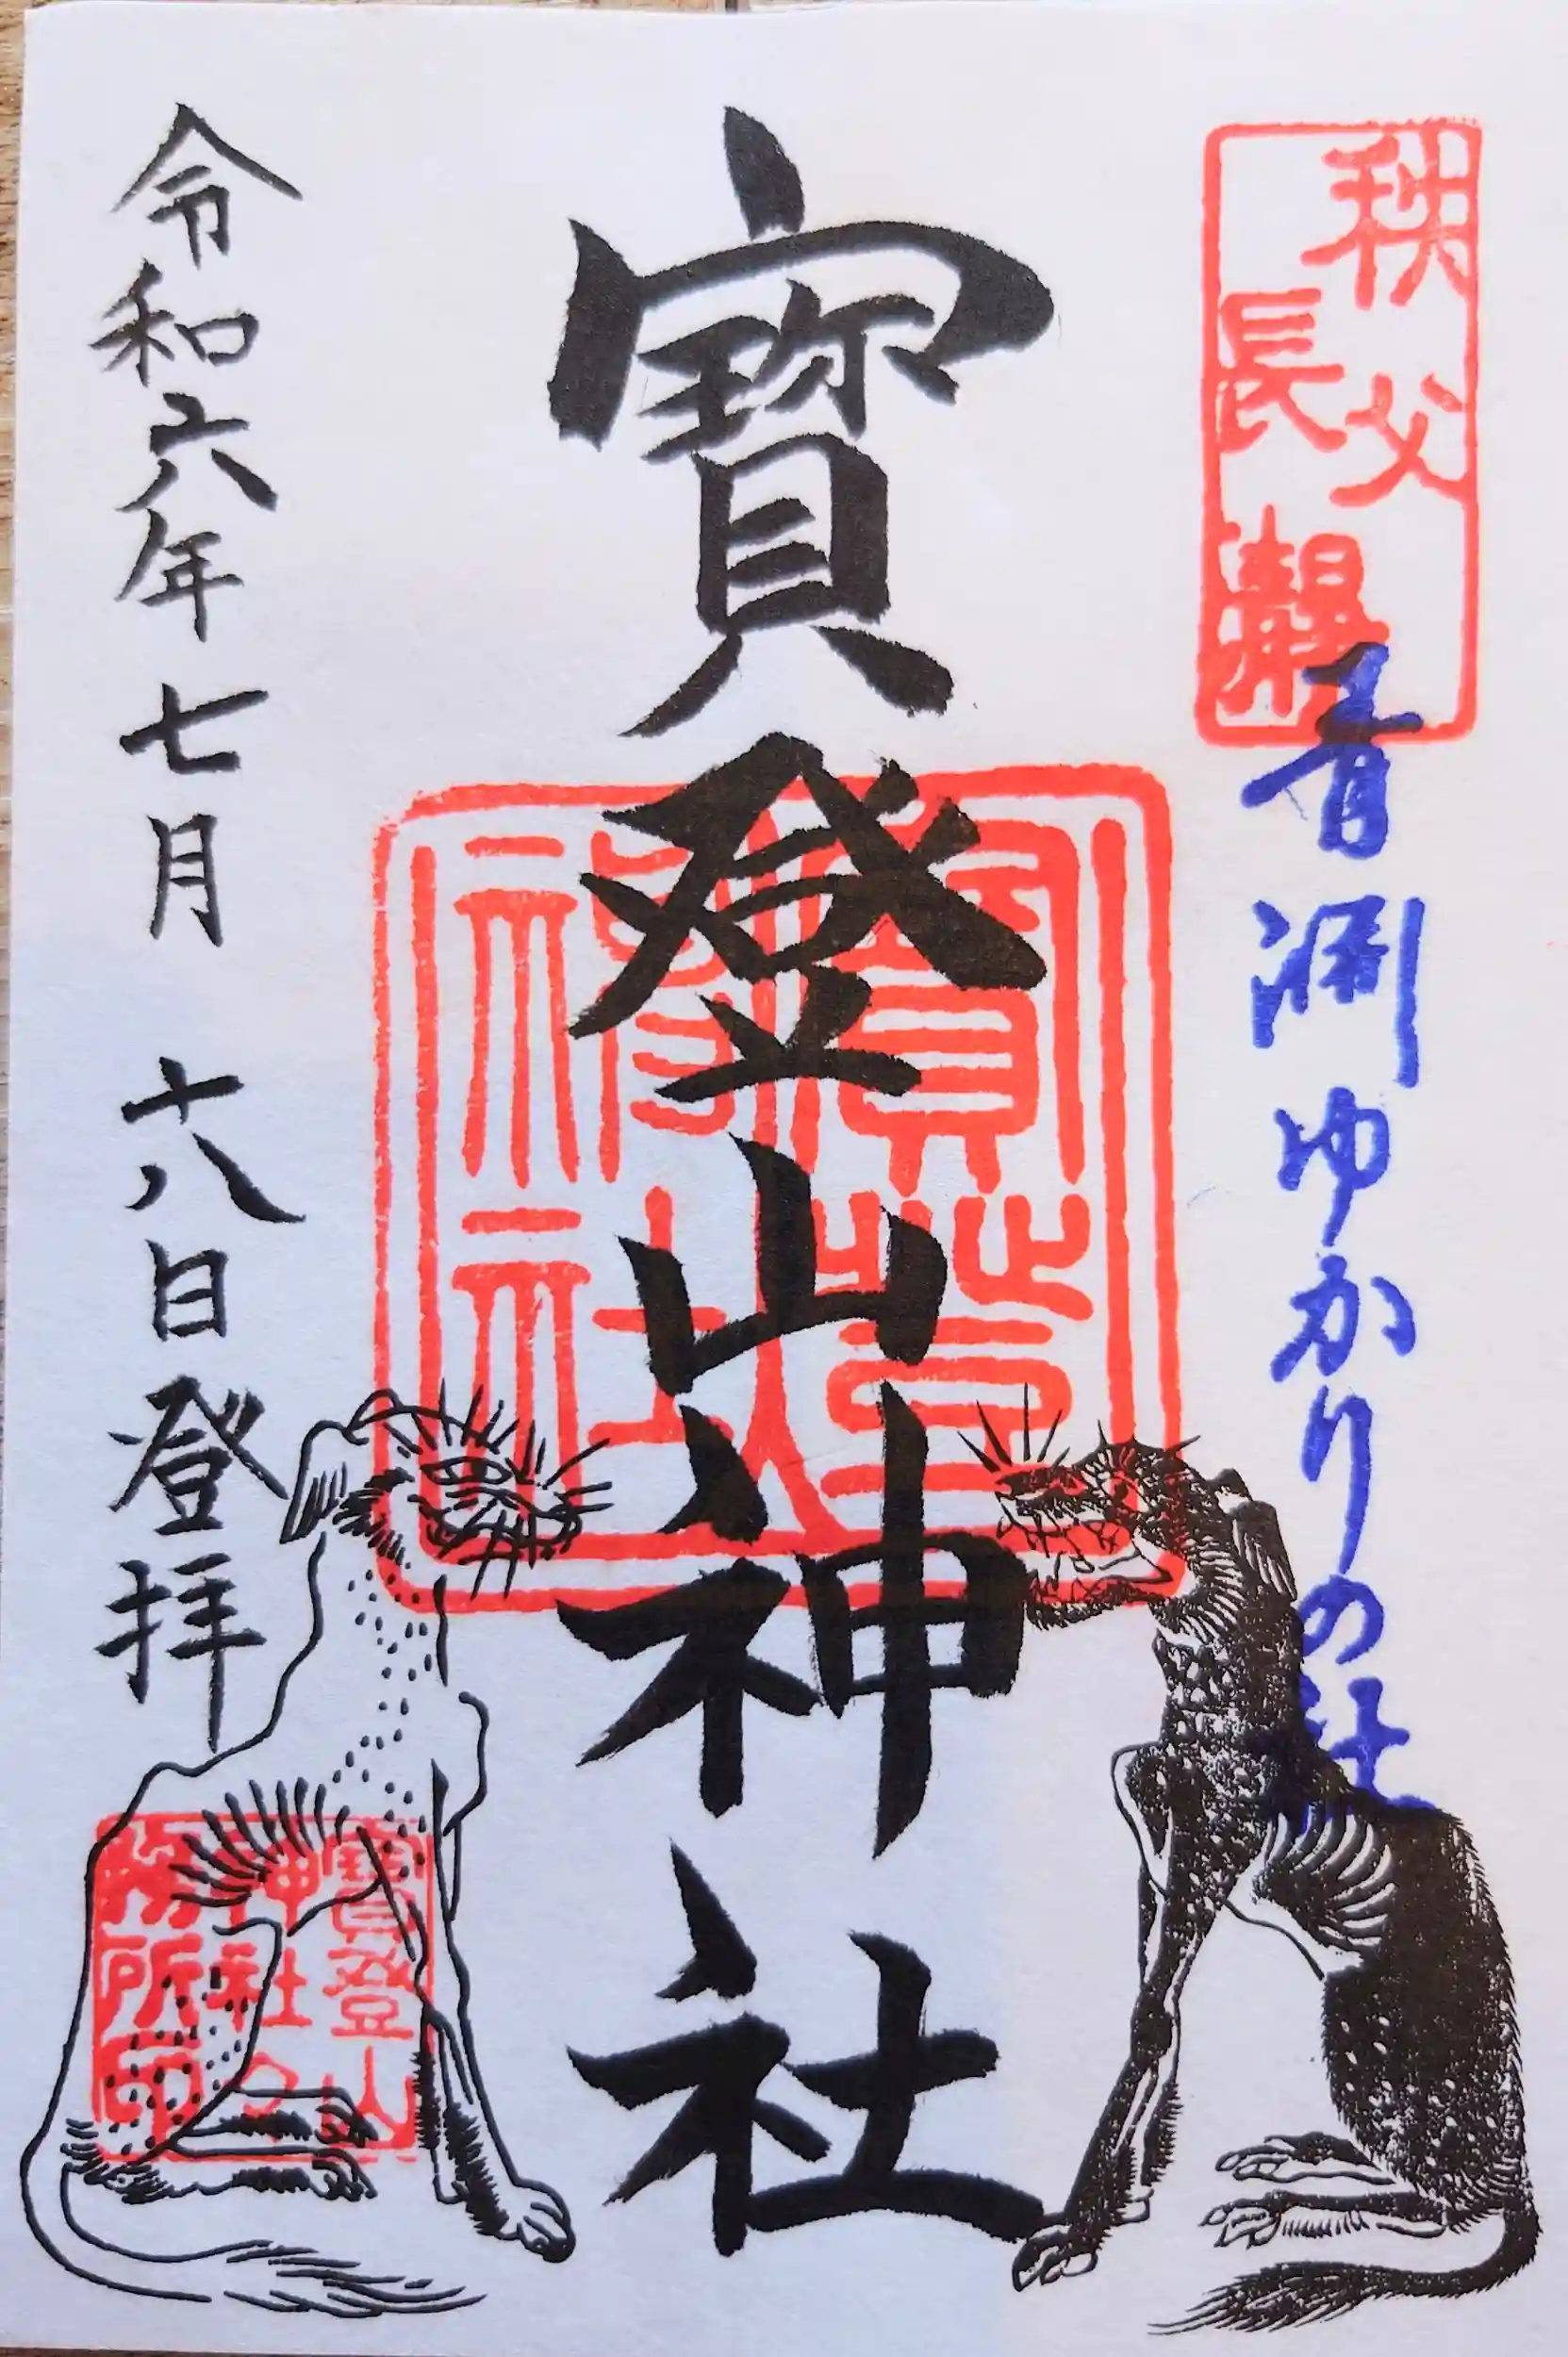 秩父
長瀞
青淵ゆかりの社
寶登山神社
寶登山
神社
令和六年七月十八日登拝
寶登山
神社之
務所印